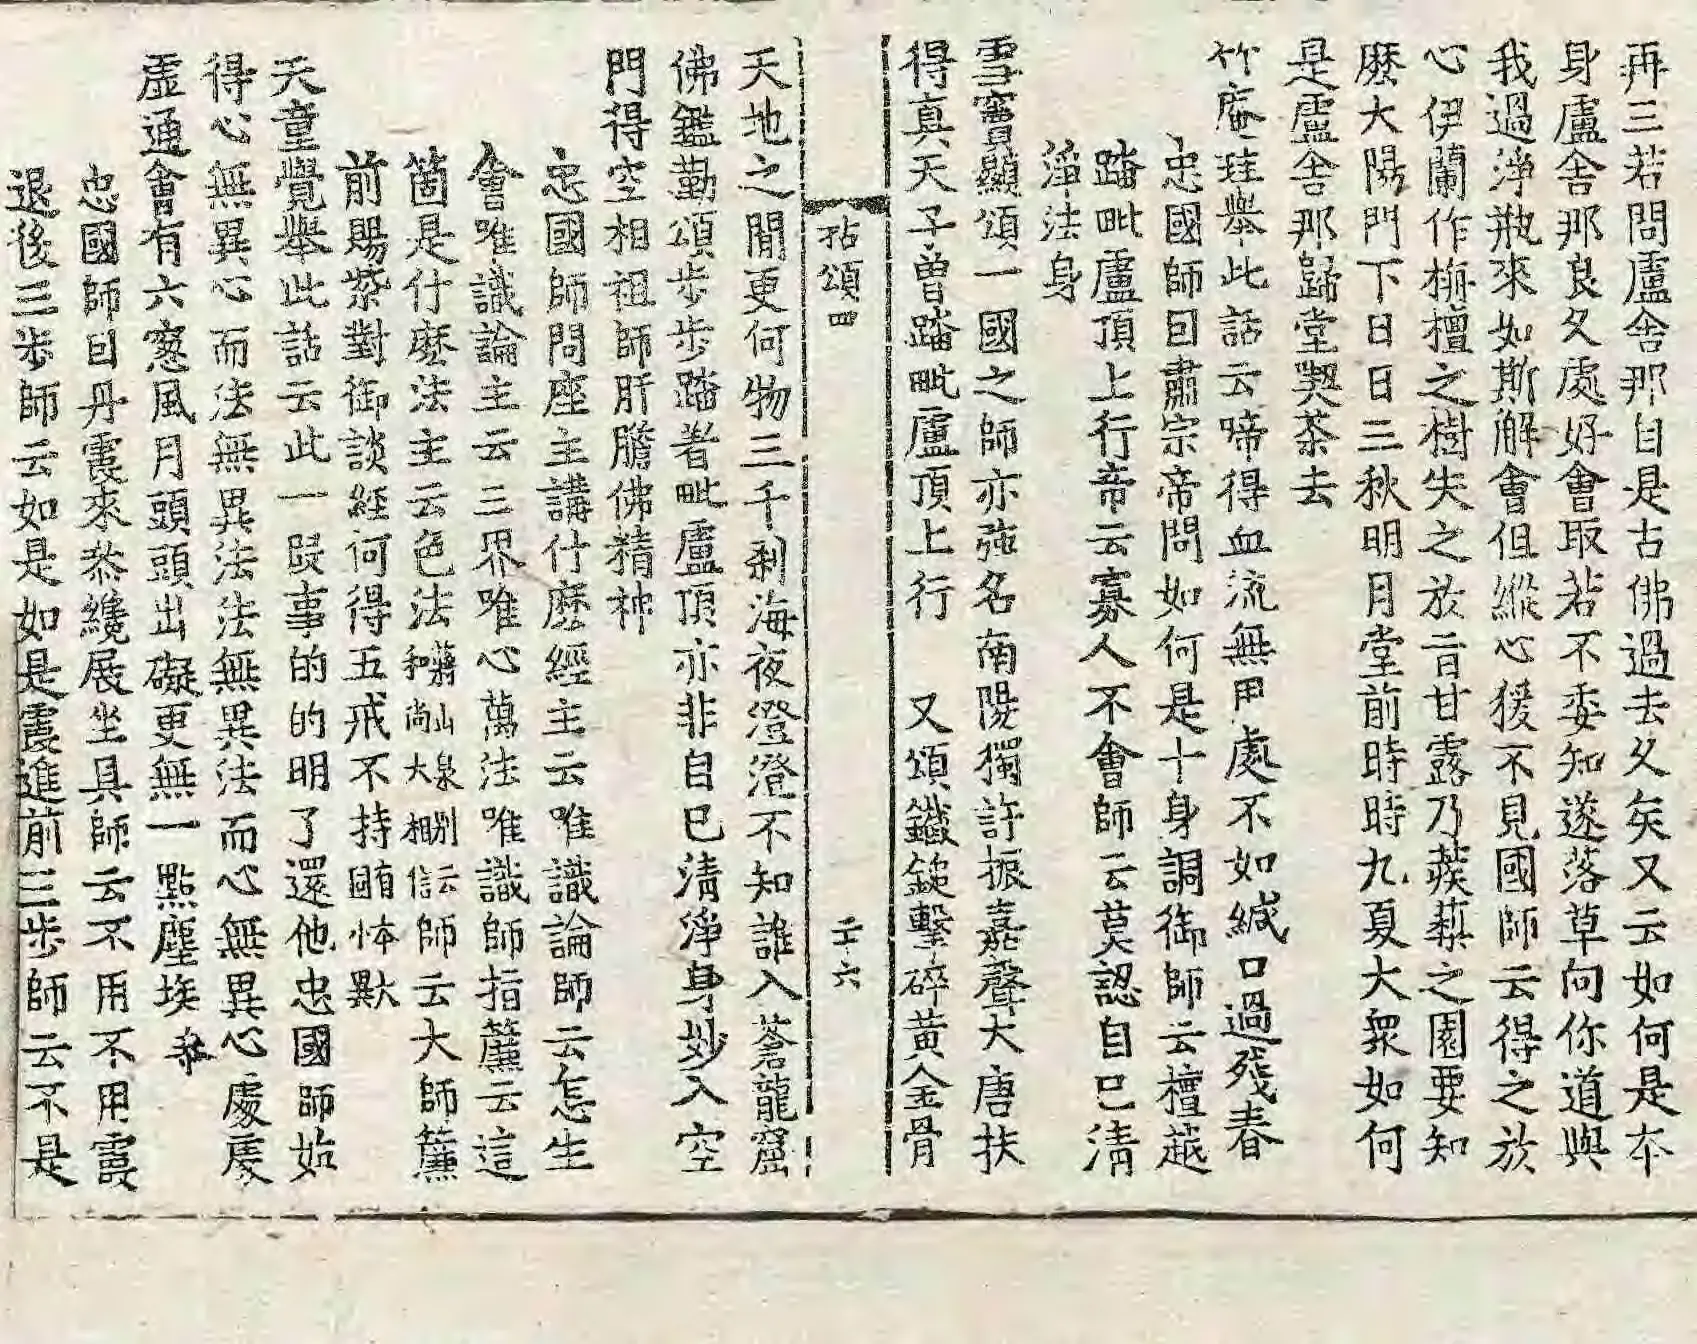 再三若問盧舍那自是古佛過去久矣又云如何是本
身盧舍那良久處好會取若不委知遂落草向你道與
我過淨瓶來如斯解會但縱心猨不見國師云得之於
心伊蘭作栴檀之樹失之於旨甘露乃蒺䔧之園要知
麽大陽門下日日三秋明月堂前時時九夏大衆如何
是盧舍那歸堂喫茶去
竹庵珪舉此話云啼得血流無用處不如緘口過殘春
忠國師因肅宗帝問如何是十身調御師云檀越
踏毗盧頂上行帝云寡人不會師云莫認自己清
淨法身
雪竇顯頌一國之師亦強名南陽獨許振嘉聲大唐扶
得真天子曾踏毗盧頂上行　又頌鐵鎚擊碎黃金骨
拈頌四　二十六
天地之間更何物三千刹海夜澄澄不知誰入蒼龍窟
佛鑑勤頌步步步踏著毗盧頂亦非自己清淨身妙入空
門得空相祖師肝膽佛精神
忠國師問座主講什麽經主云唯識論師云怎生
會唯識論主云三界唯心萬法唯識師指簾云這
箇是什麽法主云色法蔣山泉別云和尚大相信師云大師簾
前賜紫對御談經何得五戒不持
天童覺舉此話云此一段事的的明了還他忠國師始
得心無異心而法無異法法無異法而心無異心處處
虛通會有六窓風月頭頭出礙更無一點塵埃
忠國師因丹霞來叅纔展坐具師云不用不用霞
退後三步師云如是如是霞進前三步師云不是